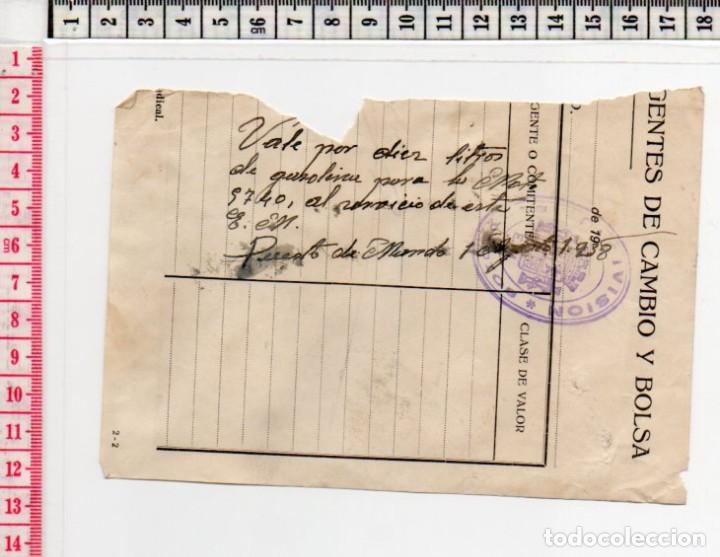 Vale por diez litros
de gasolina para la
9740, al servicio de este
E. M.
Puesto de Mando 1 Agosto 1.938
GENTES DE CAMBIO Y BOLSA
de 193
GENTE O COMITENTE
CLASE DE VALOR
dical.
2-2
IVISION
1 2 3 4 5 6 7 8 9 10 11 12 13 14 15 16 17 18
1
2
3
4
5
6
7
8
9
10
11
12
13
14
todocoleccion